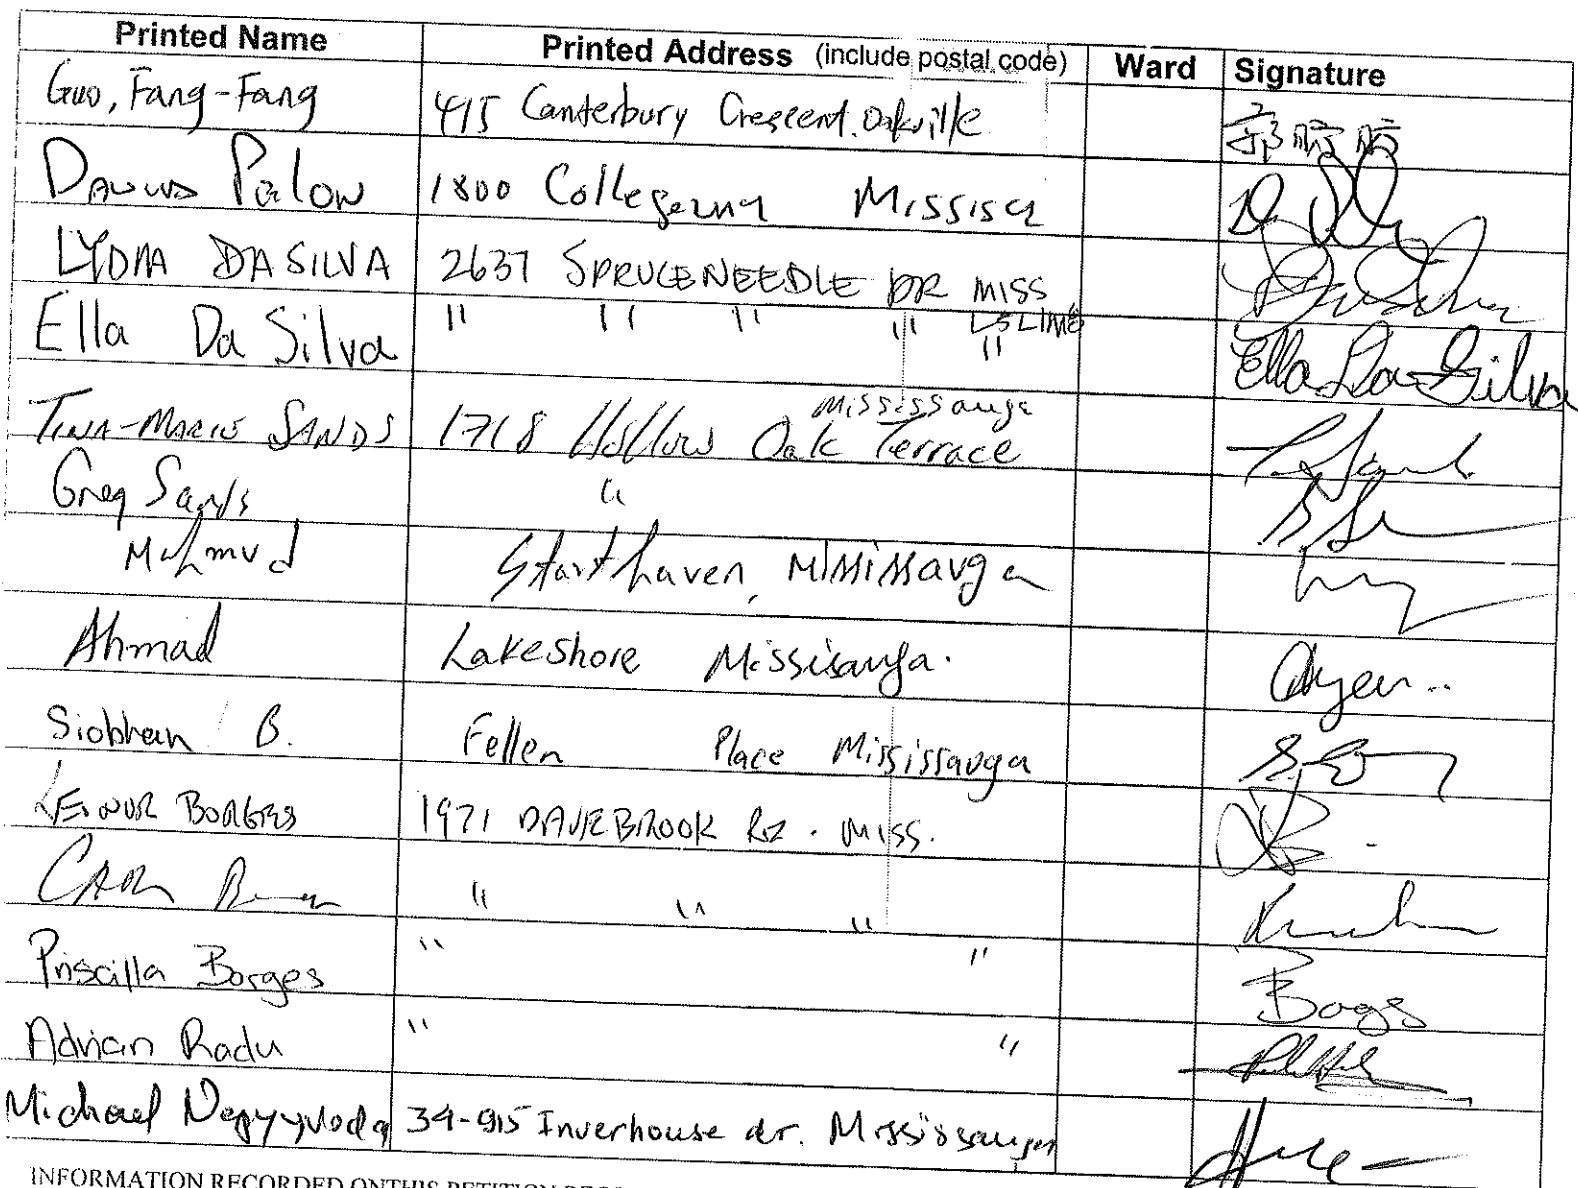 Printed Name Printed Address (include postal code) Ward Signature
Guo, Fang-Fang 415 Canterbury Crescent. Oakville 郭昉昉
Palow 1800 Missisa
LYDIA DASILVA 2637 SPRUCENEEDLE DR MISS
L5L1M6
Ella Da Silva " " " " " Ella Da Silva
Mississauga
TINA-MARIE SANDS 1718 Hollow Oak Terrace
Greg Sands "
Mahmud Mississauga
Ahmad Lakeshore Missisauga.
Siobhan B. Fellen Place Mississauga
LEONOR BORGES 1971 DAVEBROOK Rd. MISS.
" " "
Priscilla Borges " "
Adrian Radu " "
Michael 34-915 Inverhouse dr. Mississauga
INFORMATION RECORDED ONTHIS PETITION